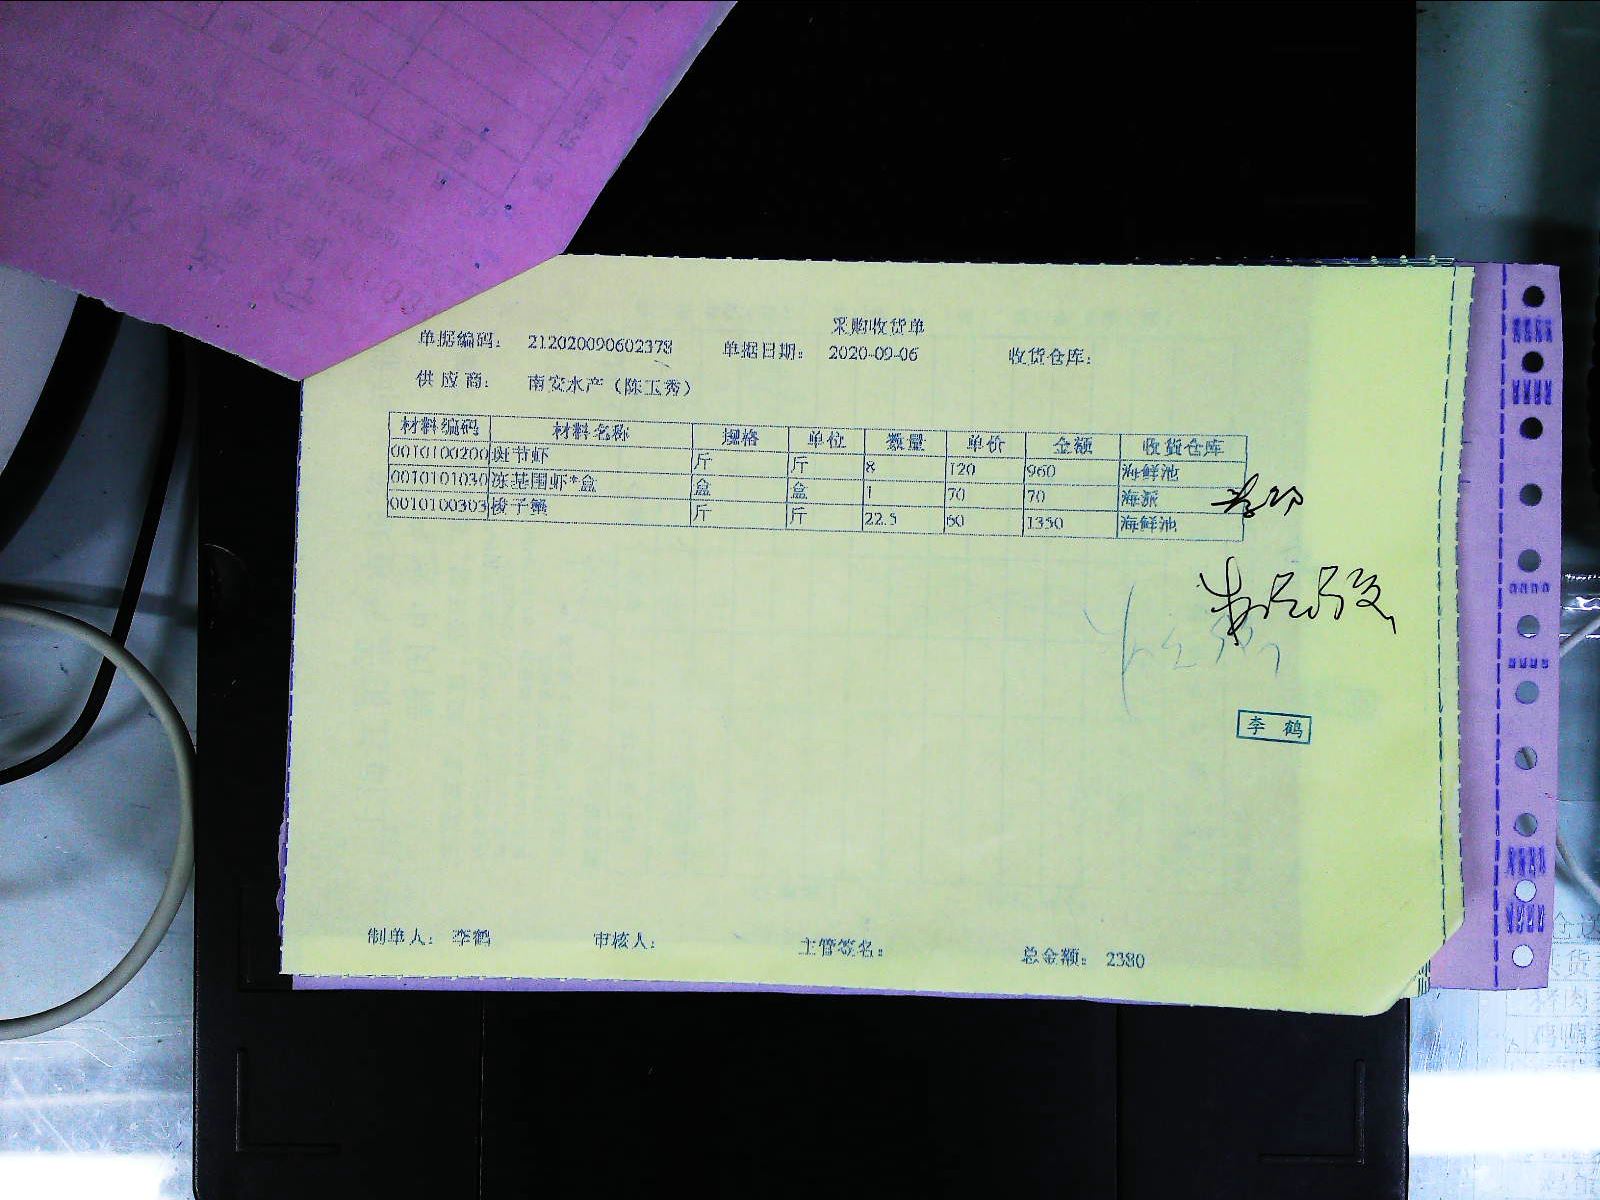 采购收货单
单据编码: 212020090602378 单据日期: 2020-09-06 收货仓库:
供应商: 南安水产(陈玉秀)
材料编码 材料名称 规格 单位 数量 单价 金额 收货仓库
0010100200 斑节虾 斤 斤 8 120 960 海鲜池
0010101030 冻基围虾*盒 盒 盒 1 70 70 海派
0010100303 梭子蟹 斤 斤 22.5 60 1350 海鲜池
李鹤
制单人: 李鹤 审核人: 主管签名: 总金额: 2380